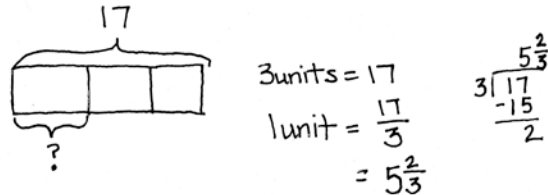 17
?
3units = 17
1unit = 17/3
= 5 2/3
5 2/3
3 17
-15
2